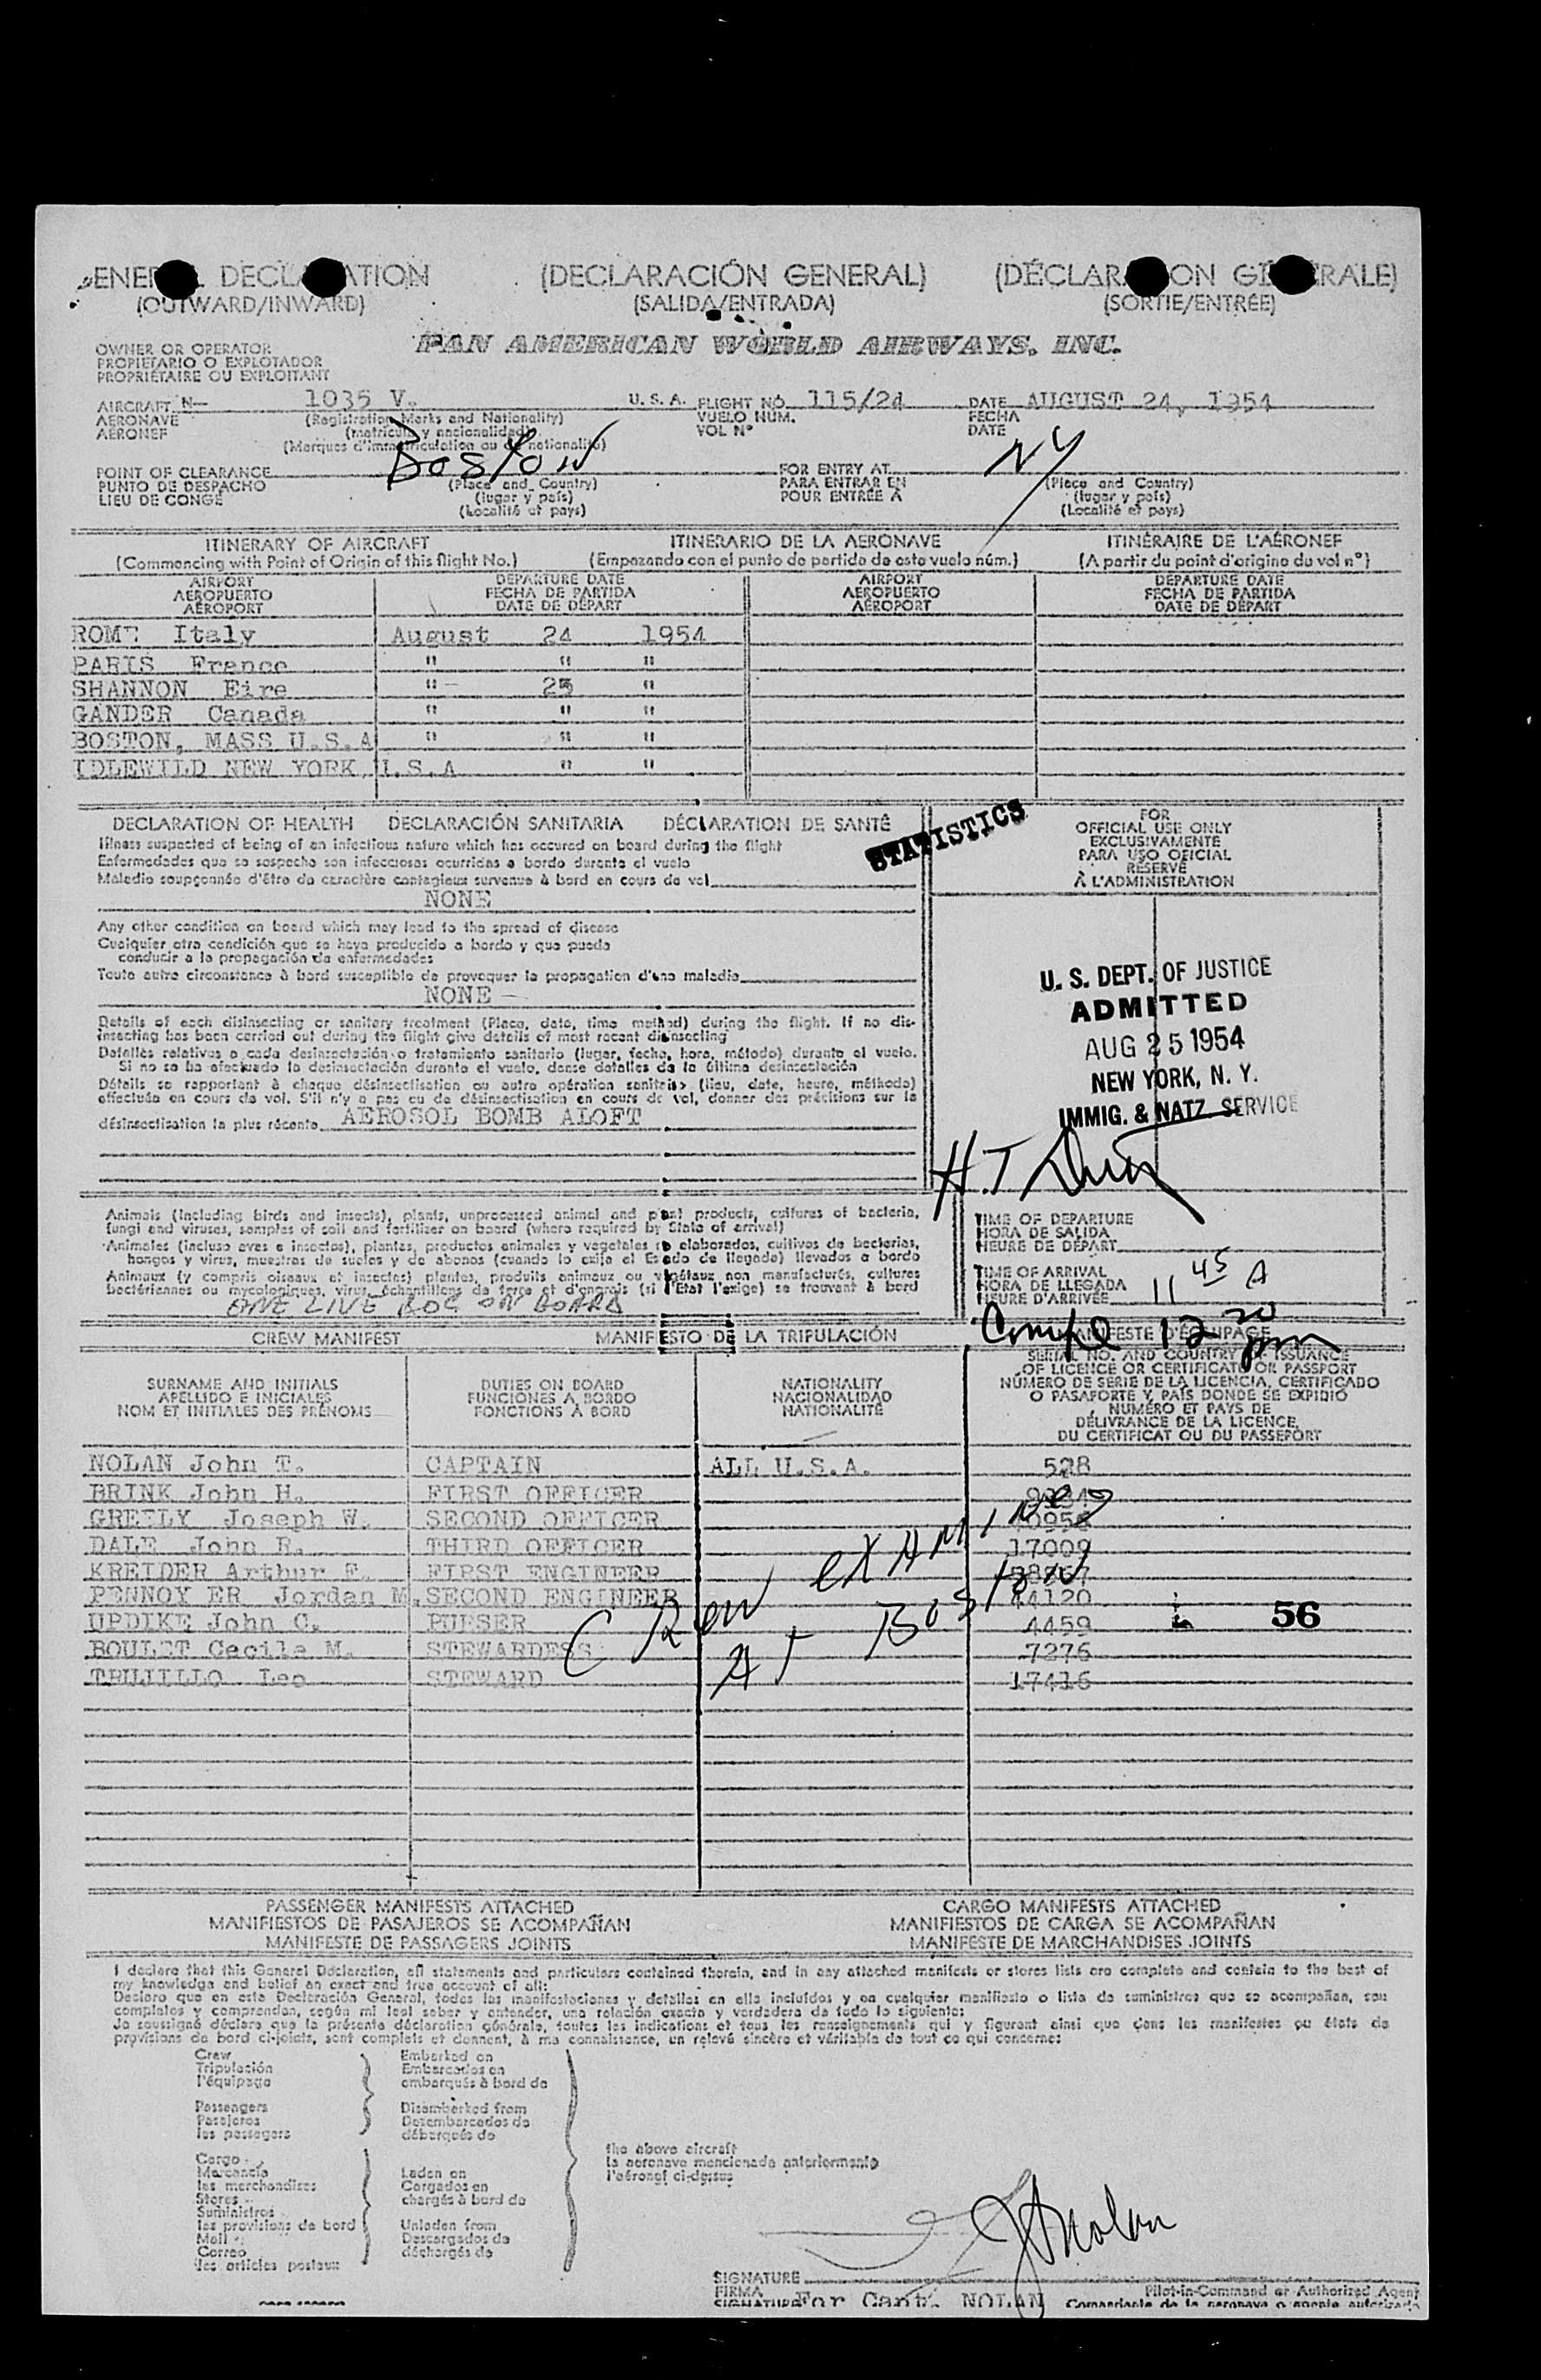 DECLARATION (DECLARACIÓN GENERAL) (DÉCLARATION GÉNÉRALE)
(OUTWARD/INWARD) (SALIDA/ENTRADA) (SORTIE/ENTRÉE)
PAN AMERICAN WORLD AIRWAYS, INC.
OWNER OR OPERATOR
PROPIETARIO O EXPLOTADOR
PROPRIÉTAIRE OU EXPLOITANT
AIRCRAFT N— 1035 V. U. S. A. FLIGHT NO. 115/24 DATE AUGUST 24, 1954
AERONAVE (Registration Marks and Nationality) VUELO NÚM. FECHA
AÉRONEF (matrícula y nacionalidad) VOL Nº DATE
(Marques d'immatriculation ou de nationalité)
POINT OF CLEARANCE Boston FOR ENTRY AT NY
PUNTO DE DESPACHO (Place and Country) PARA ENTRAR EN (Place and Country)
LIEU DE CONGÉ (lugar y país) POUR ENTRÉE À (lugar y país)
(Localité et pays) (Localité et pays)
ITINERARY OF AIRCRAFT ITINERARIO DE LA AERONAVE ITINÉRAIRE DE L'AÉRONEF
(Commencing with Point of Origin of this flight No.) (Empezando con el punto de partida de este vuelo núm.) (A partir du point d'origine du vol nº)
AIRPORT DEPARTURE DATE AIRPORT DEPARTURE DATE
AEROPUERTO FECHA DE PARTIDA AEROPUERTO FECHA DE PARTIDA
AÉROPORT DATE DE DÉPART AÉROPORT DATE DE DÉPART
ROME Italy August 24 1954
PARIS France " " "
SHANNON Eire " 25 "
GANDER Canada " " "
BOSTON, MASS U.S.A " " "
IDLEWILD NEW YORK, U.S.A " "
DECLARATION OF HEALTH DECLARACIÓN SANITARIA DÉCLARATION DE SANTÉ
Illness suspected of being of an infectious nature which has occured on board during the flight
Enfermedades que se sospecha son infecciosas ocurridas a bordo durante el vuelo
Maladie soupçonnée d'être du caractère contagieux survenue à bord en cours de vol
NONE
Any other condition on board which may lead to the spread of disease
Cualquier otra condición que se haya producido a bordo y que pueda
conducir a la propagación de enfermedades
Toute autre circonstance à bord susceptible de provoquer la propagation d'une maladie
NONE —
Details of each disinsecting or sanitary treatment (Place, date, time method) during the flight. If no dis-
insecting has been carried out during the flight give details of most recent disinsecting
Detalles relativos a cada desinsectación o tratamiento sanitario (lugar, fecha, hora, método) durante el vuelo.
Si no se ha efectuado la desinsectación durante el vuelo, dense detalles de la última desinsectación
Détails se rapportant à chaque désinsectisation ou autre opération sanitaire (lieu, date, heure, méthode)
effectuée en cours de vol. S'il n'y a pas eu de désinsectisation en cours de vol, donner des précisions sur la
désinsectisation la plus récente AEROSOL BOMB ALOFT
STATISTICS
FOR
OFFICIAL USE ONLY
EXCLUSIVAMENTE
PARA USO OFICIAL
RÉSERVÉ
À L'ADMINISTRATION
U. S. DEPT. OF JUSTICE
ADMITTED
AUG 25 1954
NEW YORK, N. Y.
IMMIG. & NATZ SERVICE
H.T.
Animals (including birds and insects), plants, unprocessed animal and plant products, cultures of bacteria,
fungi and viruses, samples of soil and fertilizer on board (where required by State of arrival)
Animales (incluso aves e insectos), plantas, productos animales y vegetales no elaborados, cultivos de bacterias,
hongos y virus, muestras de suelos y de abonos (cuando lo exija el Estado de llegada) llevados a bordo
Animaux (y compris oiseaux et insectes) plantes, produits animaux ou végétaux non manufacturés, cultures
bactériennes ou mycologiques, virus, échantillons de terre et d'engrais (si l'Etat l'exige) se trouvant à bord
ONE LIVE DOG ON BOARD
TIME OF DEPARTURE
HORA DE SALIDA
HEURE DE DÉPART
TIME OF ARRIVAL
HORA DE LLEGADA
HEURE D'ARRIVÉE 11 45 A
Compl 12 20 pm
CREW MANIFEST MANIFIESTO DE LA TRIPULACIÓN MANIFESTE D'ÉQUIPAGE
SURNAME AND INITIALS DUTIES ON BOARD NATIONALITY SERIAL NO. AND COUNTRY OF ISSUANCE
APELLIDO E INICIALES FUNCIONES A BORDO NACIONALIDAD OF LICENCE OR CERTIFICATE OR PASSPORT
NOM ET INITIALES DES PRÉNOMS FONCTIONS À BORD NATIONALITÉ NÚMERO DE SERIE DE LA LICENCIA, CERTIFICADO
O PASAPORTE Y PAÍS DONDE SE EXPIDIÓ
NUMÉRO ET PAYS DE
DÉLIVRANCE DE LA LICENCE,
DU CERTIFICAT OU DU PASSEPORT
NOLAN John T. CAPTAIN ALL U.S.A. 528
BRINK John H. FIRST OFFICER
GREELY Joseph W. SECOND OFFICER
DALE John R. THIRD OFFICER 17009
KREIDER Arthur E. FIRST ENGINEER
PENNOY ER Jordan M. SECOND ENGINEER 44120
UPDIKE John C. PURSER 4459
BOULET Cecile M. STEWARDESS 7276
TRUJILLO Leo STEWARD 17416
Crew examined
At Boston
56
PASSENGER MANIFESTS ATTACHED CARGO MANIFESTS ATTACHED
MANIFIESTOS DE PASAJEROS SE ACOMPAÑAN MANIFIESTOS DE CARGA SE ACOMPAÑAN
MANIFESTE DE PASSAGERS JOINTS MANIFESTE DE MARCHANDISES JOINTS
I declare that this General Declaration, all statements and particulars contained therein, and in any attached manifests or stores lists are complete and contain to the best of
my knowledge and belief an exact and true account of all:
Declaro que en esta Declaración General, todas las manifestaciones y detalles en ella incluídos y en cualquier manifiesto o lista de suministros que se acompañan, son
completos y comprenden, según mi leal saber y entender, una relación exacta y verdadera de todo lo siguiente:
Je soussigné déclare que la présente déclaration générale, toutes les indications et tous les renseignements qui y figurent ainsi que dans les manifestes ou états de
provisions de bord ci-joints, sont complets et donnent, à ma connaissance, un relevé sincère et véritable de tout ce qui concerne:
Crew Embarked on
Tripulación Embarcados en
l'équipage embarqués à bord de
Passengers Disembarked from
Pasajeros Desembarcados de
les passagers débarqués de
the above aircraft
la aeronave mencionada anteriormente
l'aéronef ci-dessus
Cargo
Mercancía Laden on
les merchandises Cargados en
Stores chargés à bord de
Suministros
les provisions de bord Unladen from
Mail Descargados de
Correo déchargés de
les articles postaux
JTNolan
SIGNATURE
FIRMA Pilot-in-Command or Authorized Agent
SIGNATURE For Capt. NOLAN Comandante de la aeronave o agente autorizado